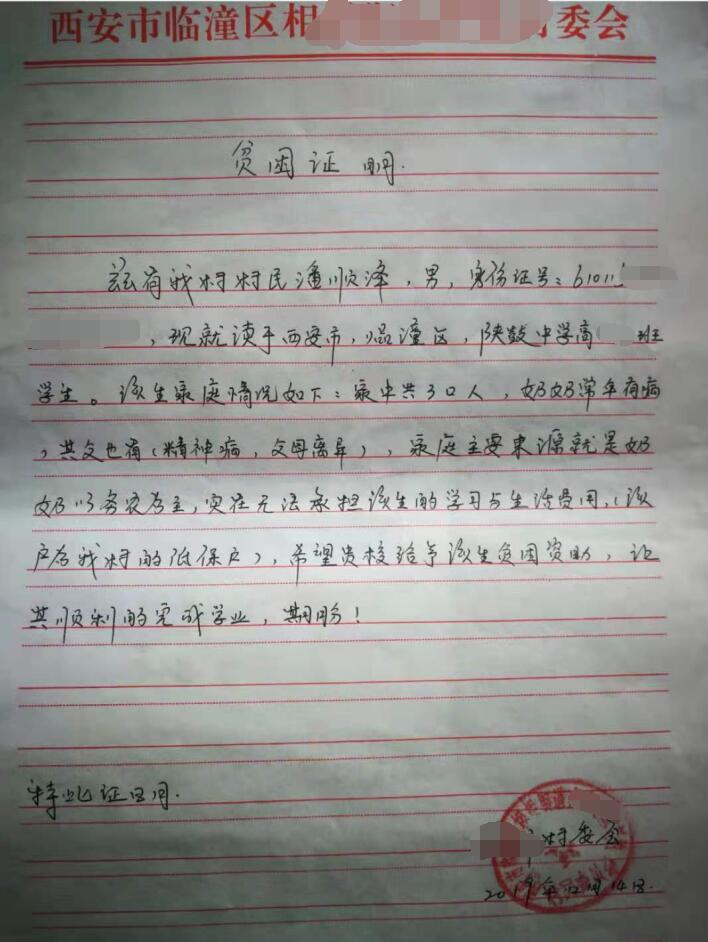 西安市临潼区相 村委会
贫困证明.
兹有我村村民潘顺泽，男，身份证号：61011
，现就读于西安市，临潼区，陕鼓中学高 班
学生。该生家庭情况如下：家中共3口人，奶奶常年有病
，其父也有（精神病，父母离异），家庭主要来源就是奶
奶以务农为主，实在无法承担该生的学习与生活费用，（该
户为我村的低保户），希望贵校给予该生贫困资助，让
其顺利的完成学业，期盼！
特此证明.
村委会
2019年12月14日.